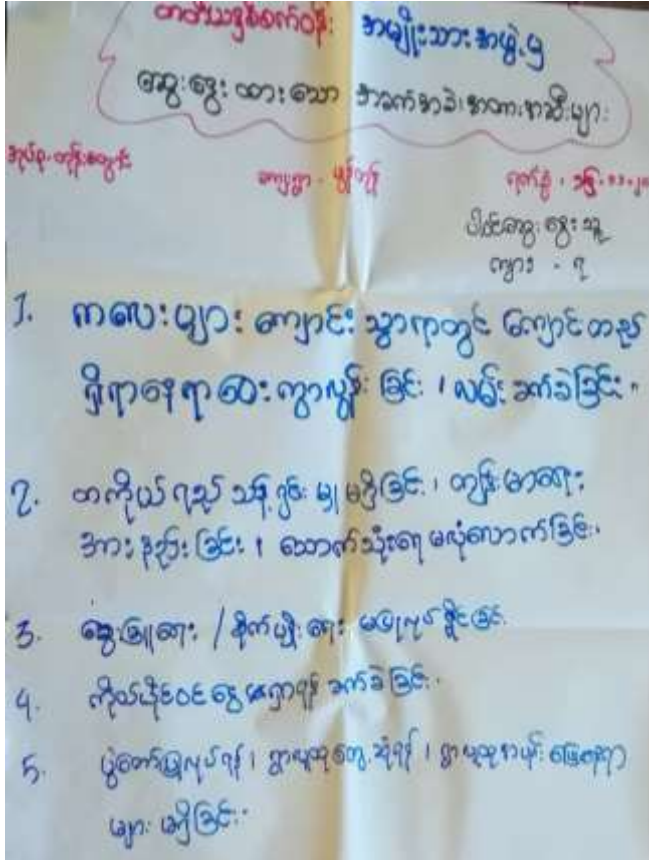 တတိယနှစ်စက်ဝန်း အမျိုးသားအဖွဲ့မှ
ဆွေးနွေးထားသော အခက်အခဲ၊ အတားအဆီးများ
အုပ်စု-
ကျေးရွာ -
ရက်စွဲ ၊
ပါဝင်ဆွေးနွေးသူ
ကျား - ၇
1. ကလေးများ ကျောင်းသွားရာတွင် ကျောင်းတည်
ရှိရာနေရာဝေးကွာလွန်းခြင်း ၊ လမ်းခက်ခဲခြင်း။
2. တကိုယ်ရည် သန့်ရှင်းမှု မရှိခြင်း ၊ ကျန်းမာရေး
အားနည်းခြင်း ၊ သောက်သုံးရေ မလုံလောက်ခြင်း။
3. မွေးမြူရေး / စိုက်ပျိုးရေး မပြုလုပ်နိုင်ခြင်း
4. ကိုယ်ပိုင်ဝင်ငွေ ရှာရန် ခက်ခဲခြင်း။
5. ပွဲတော်ပြုလုပ်ရန် ၊ ရွာလူထုတွေ့ဆုံရန် ၊ ရွာလူထု မြေနေရာ
များ မရှိခြင်း။